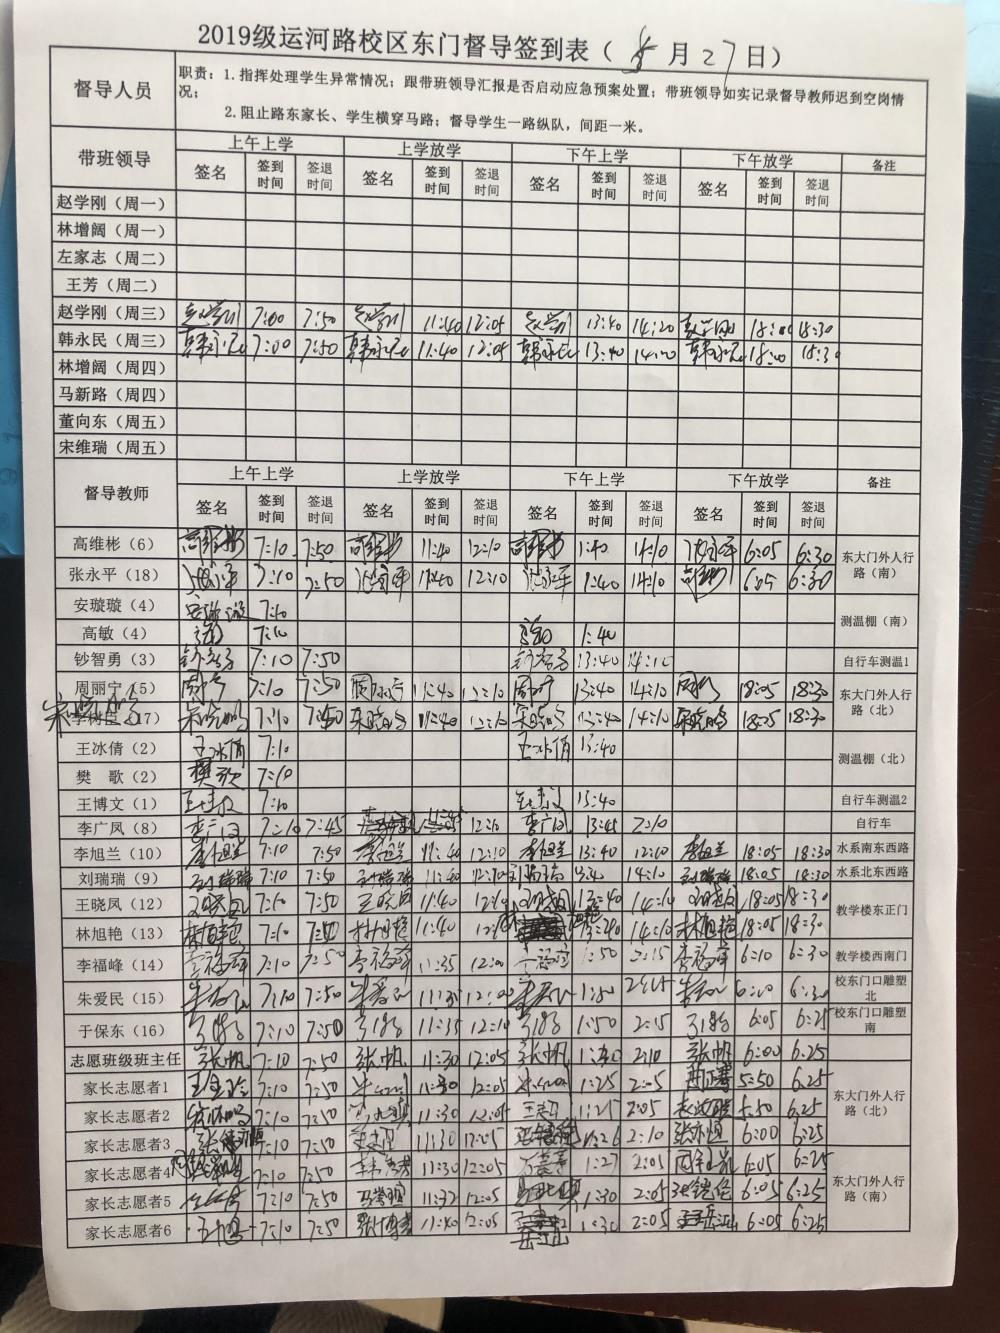 2019级运河路校区东门督导签到表（5月27日）
督导人员 职责：1.指挥处理学生异常情况；跟带班领导汇报是否启动应急预案处置；带班领导如实记录督导教师迟到空岗情
况；
2.阻止路东家长、学生横穿马路；督导学生一路纵队，间距一米。
带班领导 上午上学 上学放学 下午上学 下午放学 备注
签名 签到时间 签退时间 签名 签到时间 签退时间 签名 签到时间 签退时间 签名 签到时间 签退时间
赵学刚（周一）
林增阔（周一）
左家志（周二）
王芳（周二）
赵学刚（周三） 赵学刚 7:00 7:50 赵学刚 11:40 12:05 赵学刚 13:40 14:20 赵学刚 18:00 18:30
韩永民（周三） 韩永民 7:00 7:50 韩永民 11:40 12:05 韩永民 13:40 14:20 韩永民 18:00 18:30
林增阔（周四）
马新路（周四）
董向东（周五）
宋维瑞（周五）
督导教师 上午上学 上学放学 下午上学 下午放学 备注
签名 签到时间 签退时间 签名 签到时间 签退时间 签名 签到时间 签退时间 签名 签到时间 签退时间
高维彬（6） 高维彬 7:10 7:50 高维彬 11:40 12:10 高维彬 1:40 14:10 张永平 6:05 6:30 东大门外人行路（南）
张永平（18） 张永平 7:10 7:50 张永平 11:40 12:10 张永平 1:40 14:10 高维彬 6:05 6:30
安璇璇（4） 安璇璇 7:10 测温棚（南）
高敏（4） 高敏 7:10 高敏 1:40
钞智勇（3） 钞智勇 7:10 7:50 钞智勇 13:40 14:10 自行车测温1
周丽宁（5） 周丽宁 7:10 7:50 周丽宁 11:40 12:10 周丽宁 13:40 14:10 周丽宁 18:05 18:30 东大门外人行路（北）
宋晓鸣 （17） 宋晓鸣 7:10 7:50 宋晓鸣 11:40 12:10 宋晓鸣 13:40 14:10 宋晓鸣 18:05 18:30
王冰倩（2） 王冰倩 7:10 王冰倩 13:40 测温棚（北）
樊 歌（2） 樊歌 7:10
王博文（1） 王博文 7:10 王博文 13:40 自行车测温2
李广凤（8） 李广凤 7:10 7:45 12:10 李广凤 13:45 2:10 自行车
李旭兰（10） 李旭兰 7:10 7:50 李旭兰 11:40 12:10 李旭兰 13:40 12:10 李旭兰 18:05 18:30 水系南东西路
刘瑞瑞（9） 刘瑞瑞 7:10 7:50 刘瑞瑞 11:40 12:10 刘瑞瑞 13:40 14:10 刘瑞瑞 18:05 18:30 水系北东西路
王晓凤（12） 王晓凤 7:50 7:50 王晓凤 11:40 12:10 王晓凤 13:40 14:10 王晓凤 18:05 18:30 教学楼东正门
林旭艳（13） 林旭艳 7:10 7:50 林旭艳 11:40 林旭艳 13:40 14:10 林旭艳 18:05 18:30
李福峰（14） 李福峰 7:10 7:50 李福峰 11:35 12:00 李福峰 1:50 2:15 李福峰 6:10 6:30 教学楼西南门
朱爱民（15） 朱爱民 7:10 7:50 朱爱民 11:35 12:00 朱爱民 1:50 朱爱民 6:00 6:30 校东门口雕塑北
于保东（16） 7:10 7:50 11:35 12:10 1:50 2:15 6:05 6:25 校东门口雕塑南
志愿班级班主任 张帆 7:10 7:50 张帆 11:30 12:05 张帆 1:40 2:10 张帆 6:00 6:25
家长志愿者1 7:10 7:50 11:30 12:05 1:25 2:05 5:50 6:25 东大门外人行路（北）
家长志愿者2 7:10 7:50 11:30 12:05 1:25 2:05 5:50 6:25
家长志愿者3 7:10 7:50 11:30 12:05 1:26 2:10 张亦恒 6:00 6:25
家长志愿者4 7:10 7:50 11:30 12:05 1:27 2:05 6:05 6:25 东大门外人行路（南）
家长志愿者5 7:10 7:50 11:32 12:05 1:30 2:05 6:05 6:25
家长志愿者6 7:10 7:50 11:40 12:05 1:30 2:05 6:05 6:25